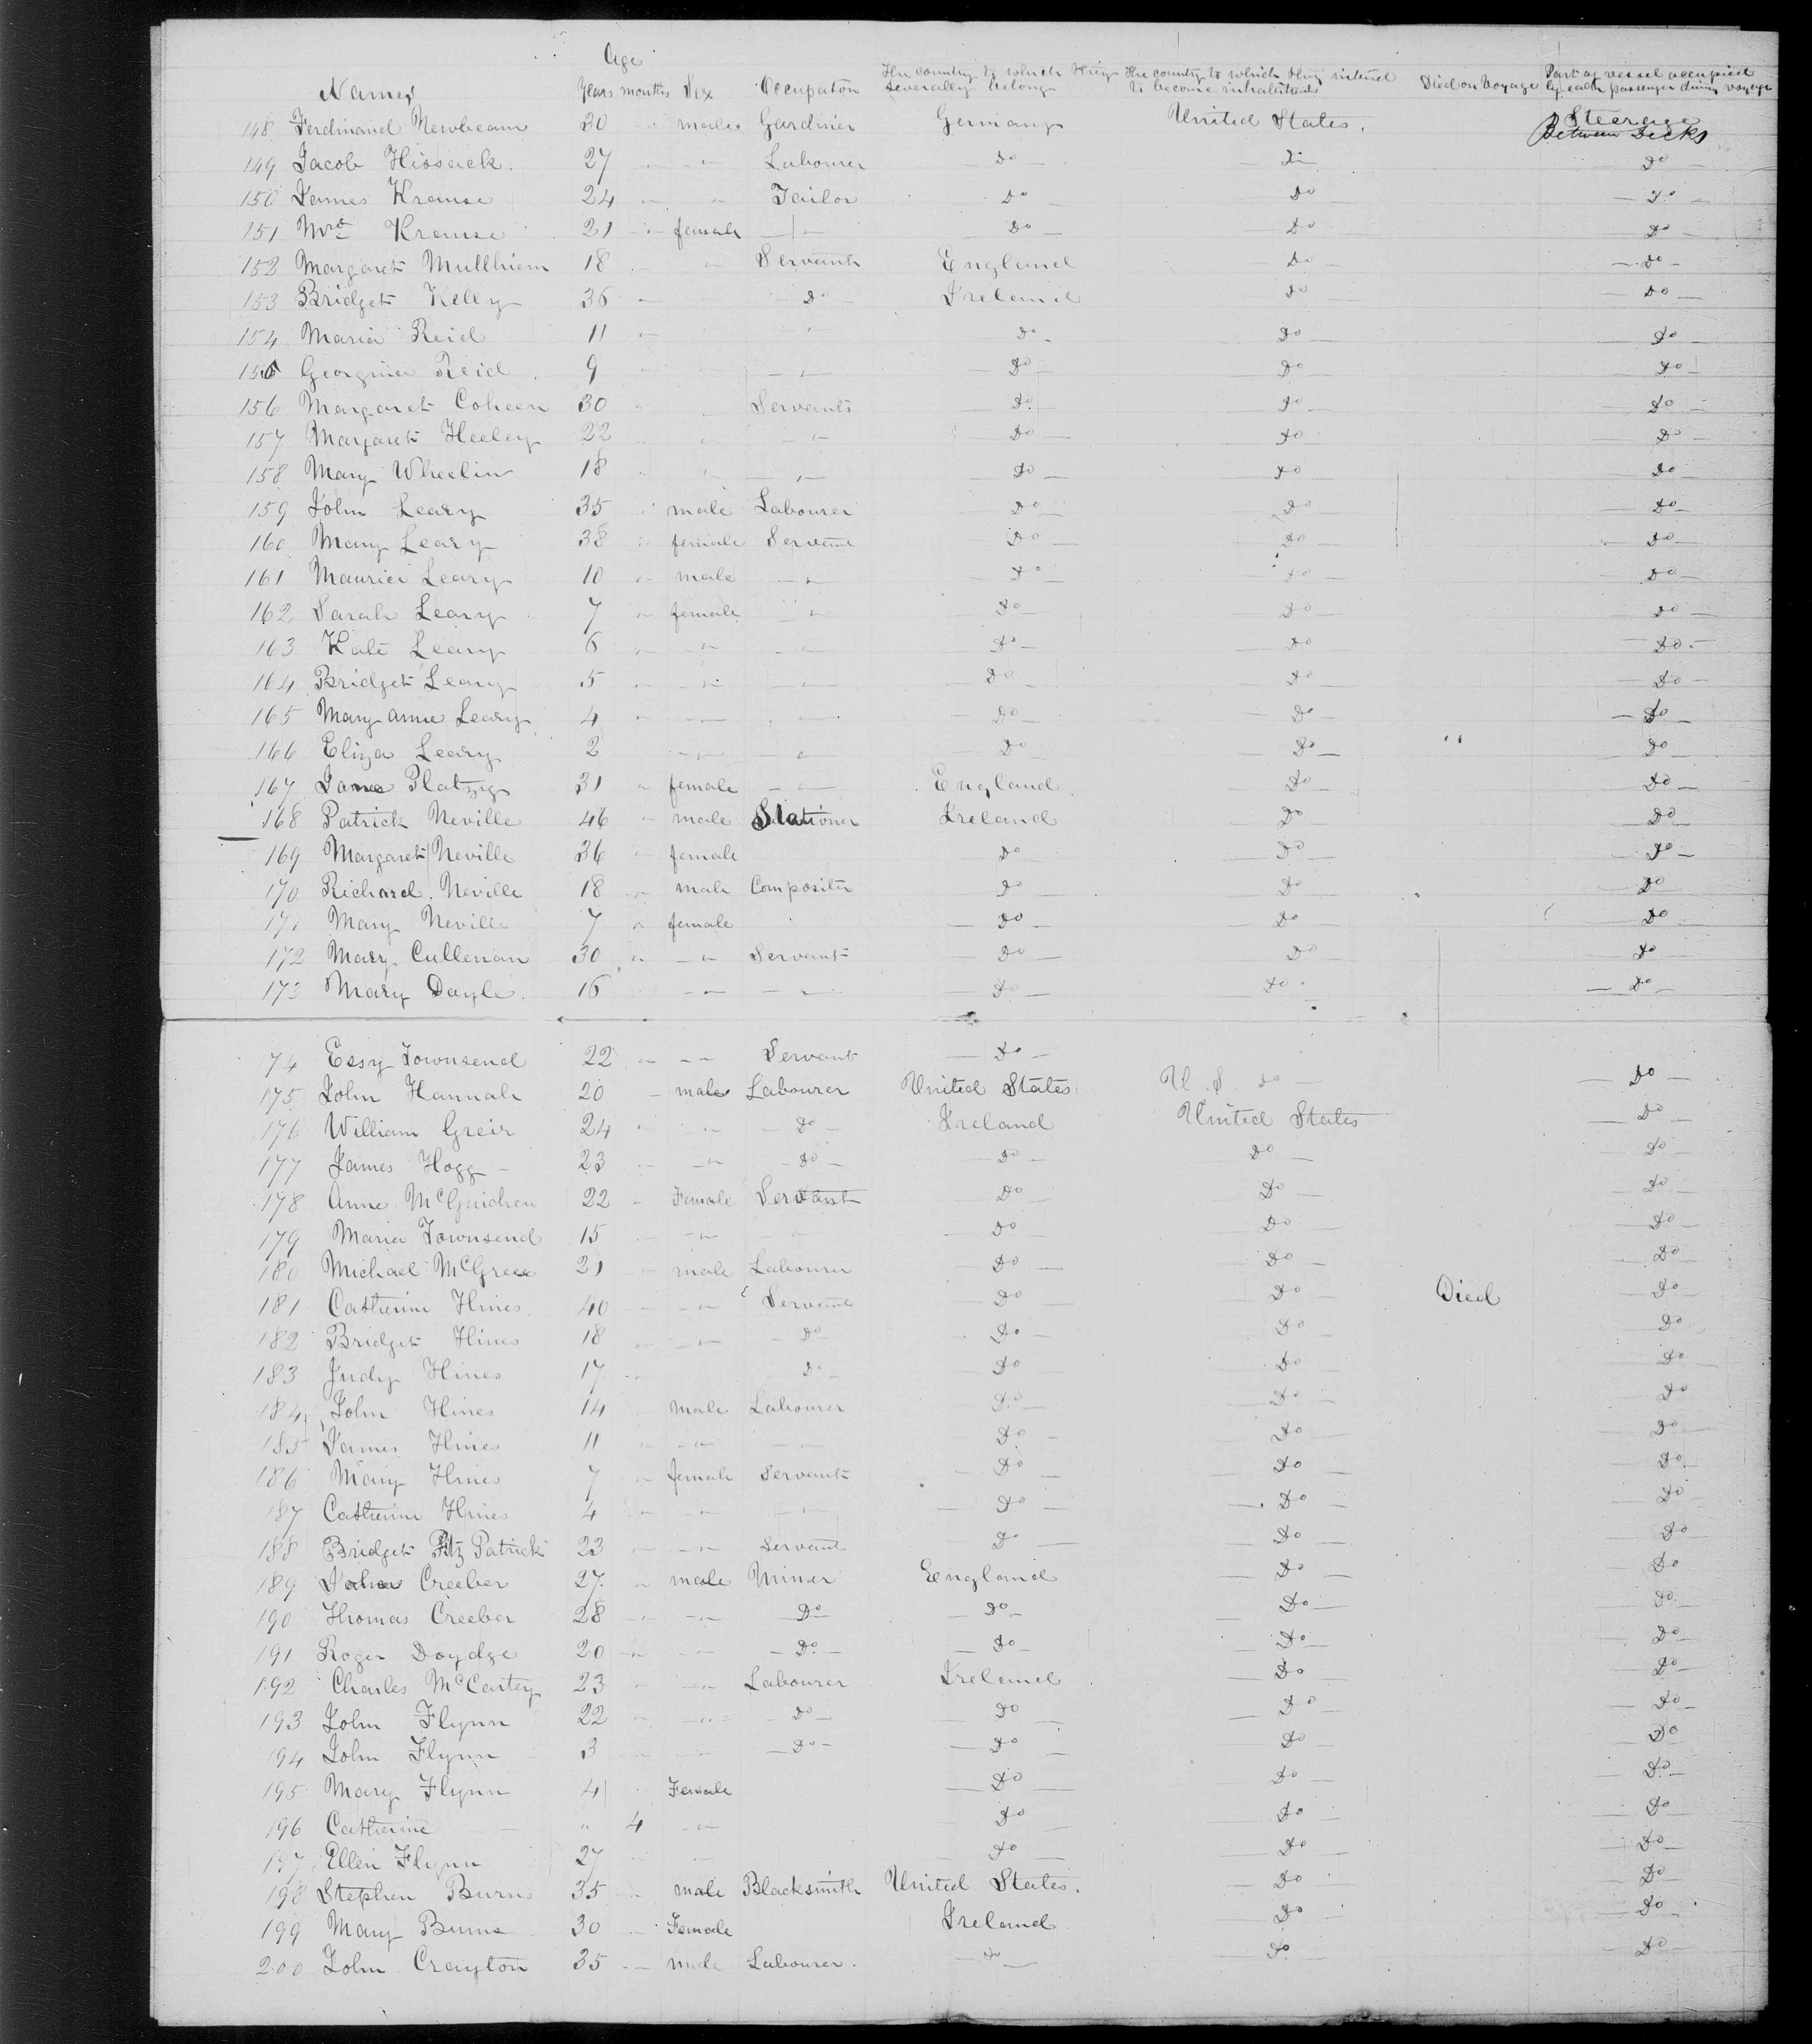 Age
Names Years months Sex Occupation The country to which they severally belong The country to which they intend to become inhabitants Died on Voyage Part of vessel occupied by each passenger during voyage
148 Ferdinand Newbeam 30 " male Gardnier Germany United States. Steerage Between Decks
149 Jacob Hissack. 27 " " Labourer Do Do Do
150 James Krause 24 " " Tailor Do Do Do
151 Mrs Krause 21 " female " Do Do Do
152 Margaret Mullhiem 18 " " Servant England Do Do
153 Bridget Kelly 36 " Do Ireland Do Do
154 Maria Reid 11 " " Do Do Do
155 Georgina Reid 9 " Do Do Do
156 Margaret Coheen 30 " Servants Do Do Do
157 Margaret Heeley 22 " " " Do Do Do
158 Mary Wheelin 18 " " " Do Do Do
159 John Leary 35 " male Labourer Do Do Do
160 Mary Leary 38 " female Servant Do Do Do
161 Maurice Leary 10 " male " Do Do Do
162 Sarah Leary 7 " female " Do Do Do
163 Kate Leary 6 " " " Do Do Do
164 Bridget Leary 5 " " " Do Do Do
165 Mary anne Leary 4 " " " Do Do Do
166 Eliza Leary 2 " " Do Do " Do
167 Jane Platzy 31 " female " England Do Do
168 Patrick Neville 46 " male Stationer Ireland Do Do
169 Margaret Neville 36 " female Do Do Do
170 Richard Neville 18 " male Compositer Do Do Do
171 Mary Neville 7 " female Do Do Do
172 Mary Cullenan 30 " " Servant Do Do Do
173 Mary Dayle. 16 " " " Do Do Do
74 Essy Townsend 22 " " Servant Do
175 John Hannah 20 " male Labourer United States U.S. Do Do
176 William Greir 24 " " Do Ireland United States Do
177 James Hogg 23 " " Do Do Do Do
178 Anne McGuichen 22 " Female Servant Do Do Do
179 Maria Townsend 15 " " Do Do Do
180 Michael McGree 21 " male Labourer Do Do Do
181 Catherine Hines 40 " " Servant Do Do Died Do
182 Bridget Hines 18 " " Do Do Do Do
183 Judy Hines 17 " Do Do Do Do
184 John Hines 14 male Labourer Do Do Do
185 James Hines 11 " " " Do Do Do
186 Mary Hines 7 " female Servant Do Do Do
187 Catherine Hines 4 " " " Do Do Do
188 Bridget Fitz Patrick 23 " " Servant Do Do Do
189 John Creeber 27 " male Miner England Do Do
190 Thomas Creeber 28 " " Do Do Do Do
191 Roger Doydge 20 " " Do Do Do Do
192 Charles McCartey 23 " " Labourer Ireland Do Do
193 John Flynn 22 " " Do Do Do Do
194 John Flynn 3 " " Do Do Do Do
195 Mary Flynn 4 " Female Do Do Do
196 Catherine " 4 " Do Do Do
197 Ellen Flynn 27 " " Do Do Do
198 Stephen Burns 35 " male Blacksmith United States. Do Do
199 Mary Burns 30 " Female Ireland Do Do
200 John Crayton 35 " male Labourer. Do Do Do